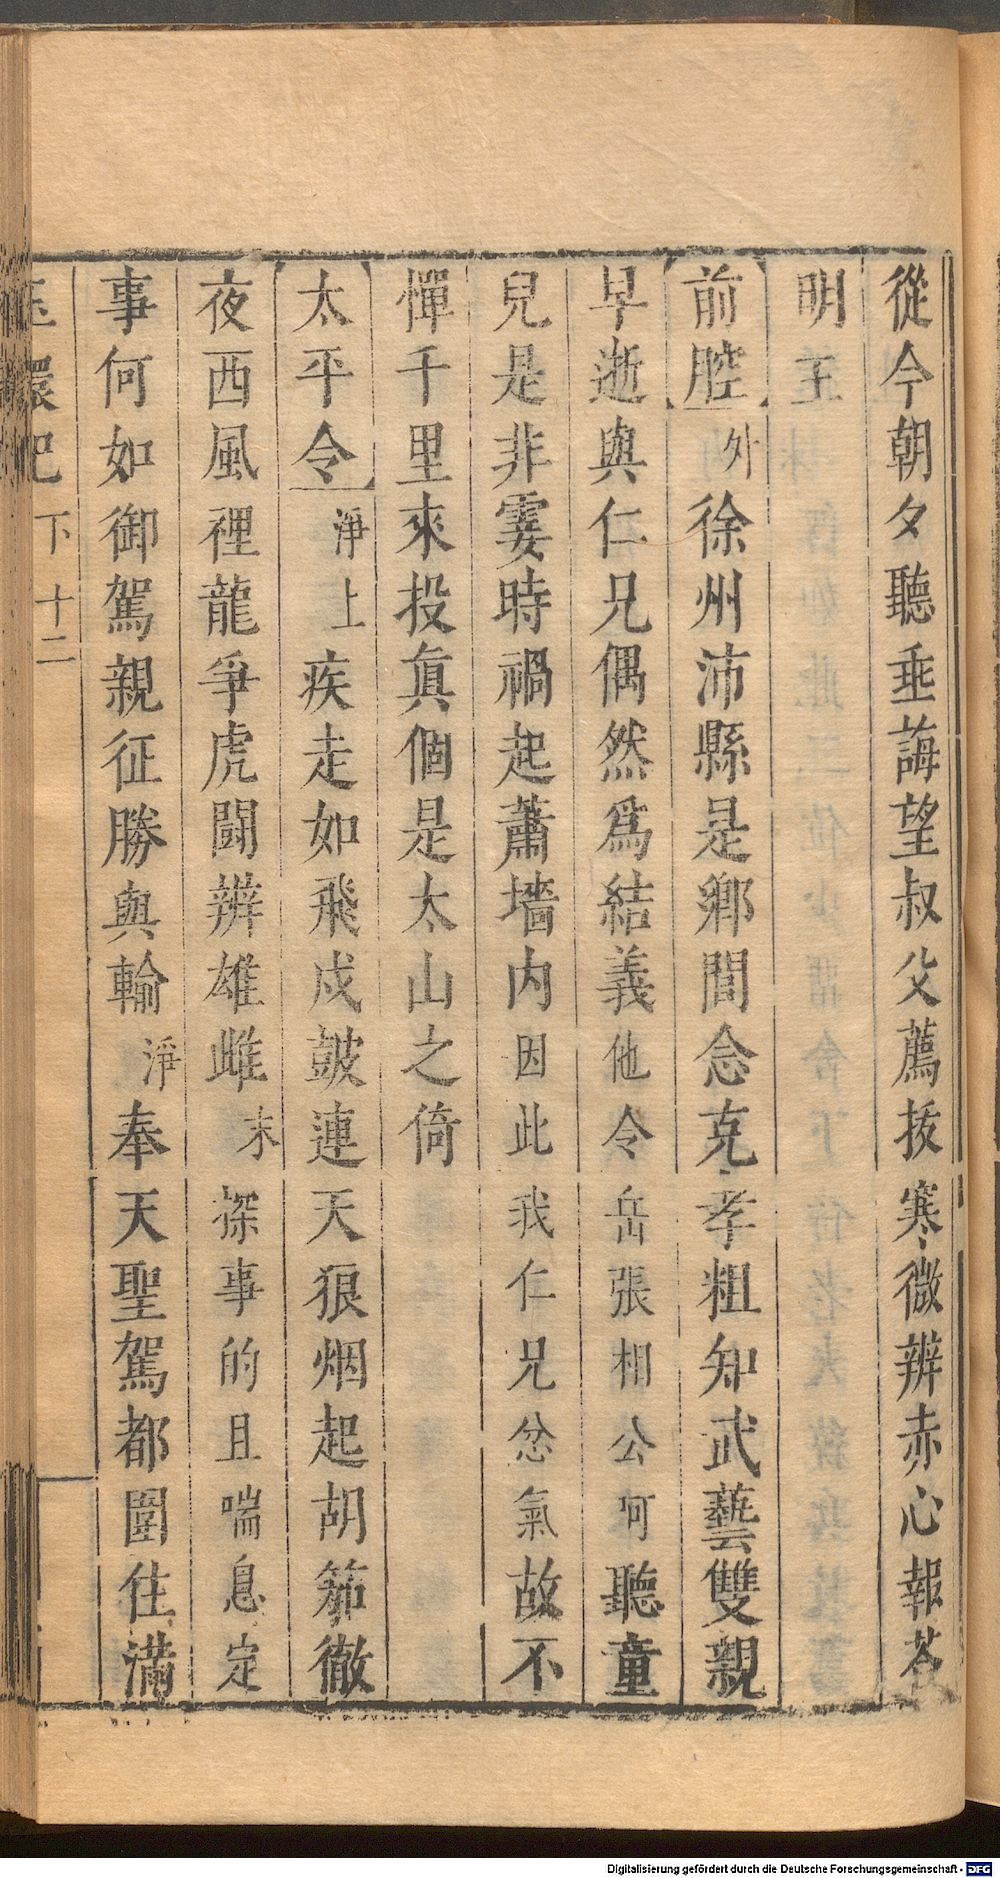 從今朝夕聽垂誨望叔父薦拔寒微辨赤心報荅
明主
前腔外徐州沛縣是鄉閭念克孝粗知武藝雙親
早逝與仁兄偶然爲結義他令岳張相公呵聽童
兒是非霎時禍起蕭墻内因此我仁兄忿氣故不
憚千里來投眞個是太山之倚
太平令淨上疾走如飛戍皷連天狼烟起胡笳徹
夜西風裡龍爭虎闘辨雄雌末探事的且喘息定
事何如御駕親征勝與輸淨奉天聖駕都圍住滿
玉環記 下 十二
Digitalisierung gefördert durch die Deutsche Forschungsgemeinschaft - DFG